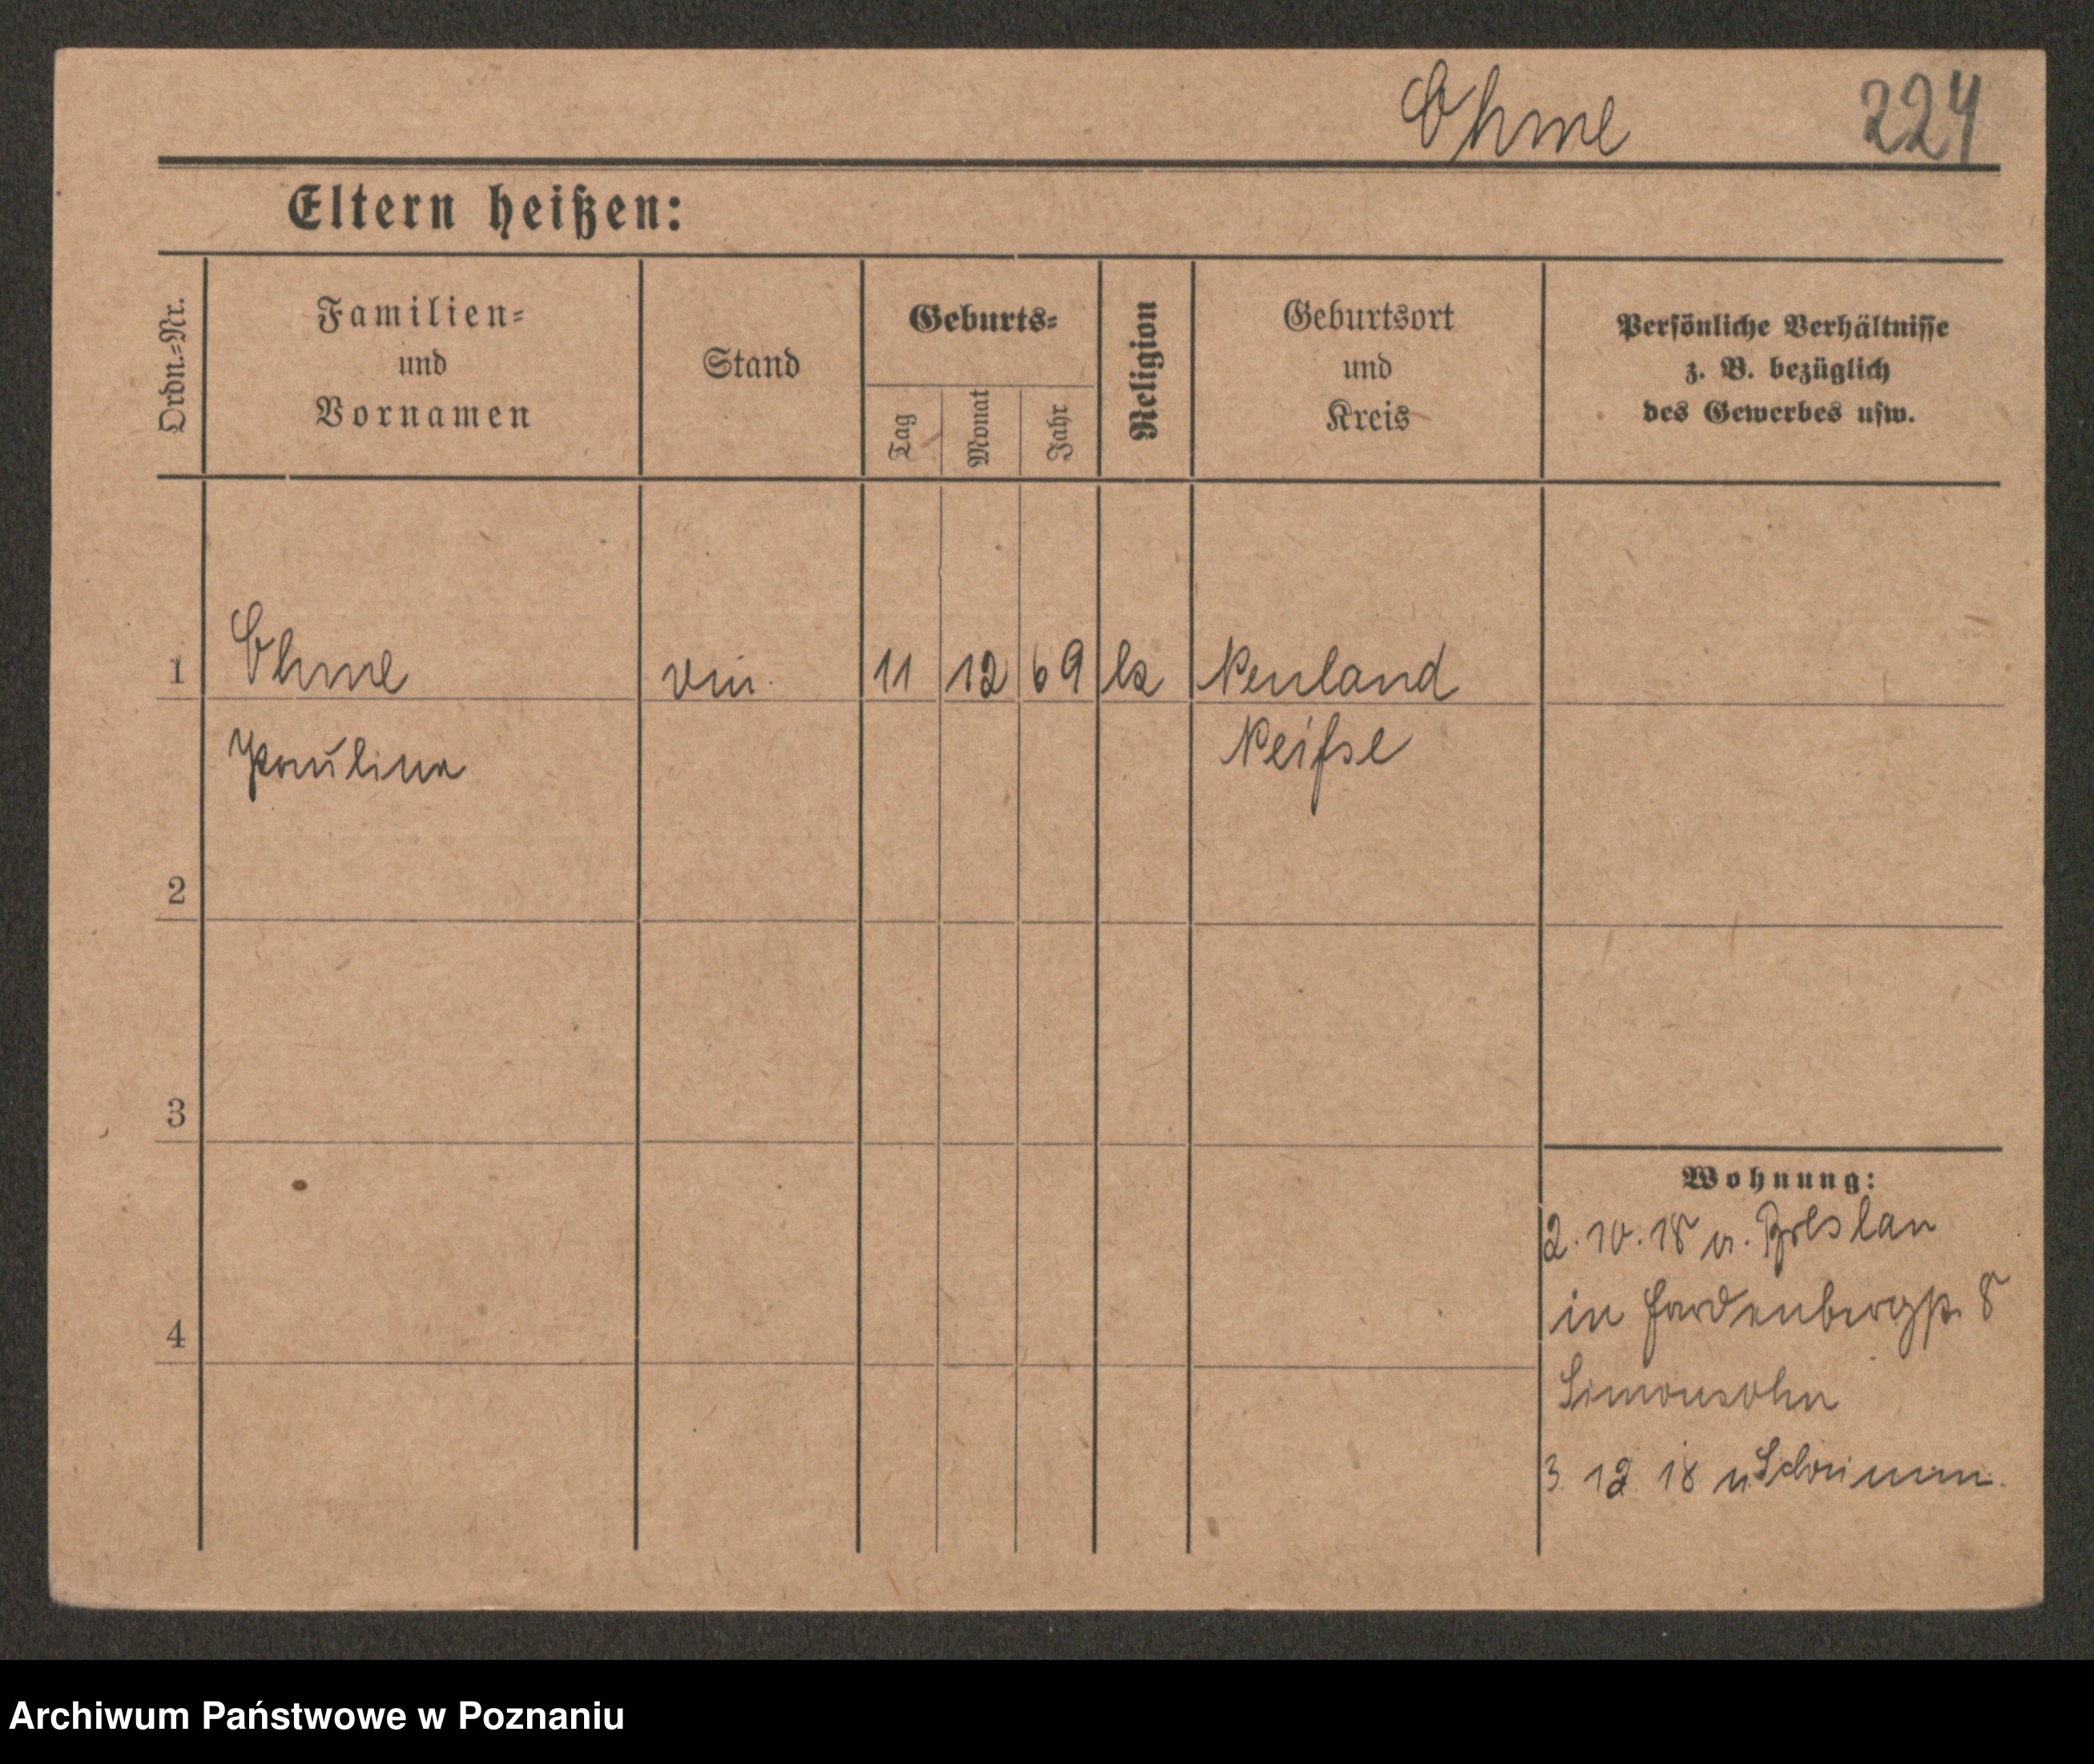 Ohme 224
Eltern heißen:
Ordn.=Nr.
Familien=
und
Vornamen
Stand
Geburts=
Tag
Monat
Jahr
Religion
Geburtsort
und
Kreis
Persönliche Verhältnisse
z. B. bezüglich
des Gewerbes usw.
1 Ohme 11 12 69 Neuland
Paulina Neisse
2
3
4
Wohnung:
2. 10. 18 v. Breslau
in Hardenbergstr. 8
Simonsohn
3. 12 18 n. Schrimm.
Archiwum Państwowe w Poznaniu